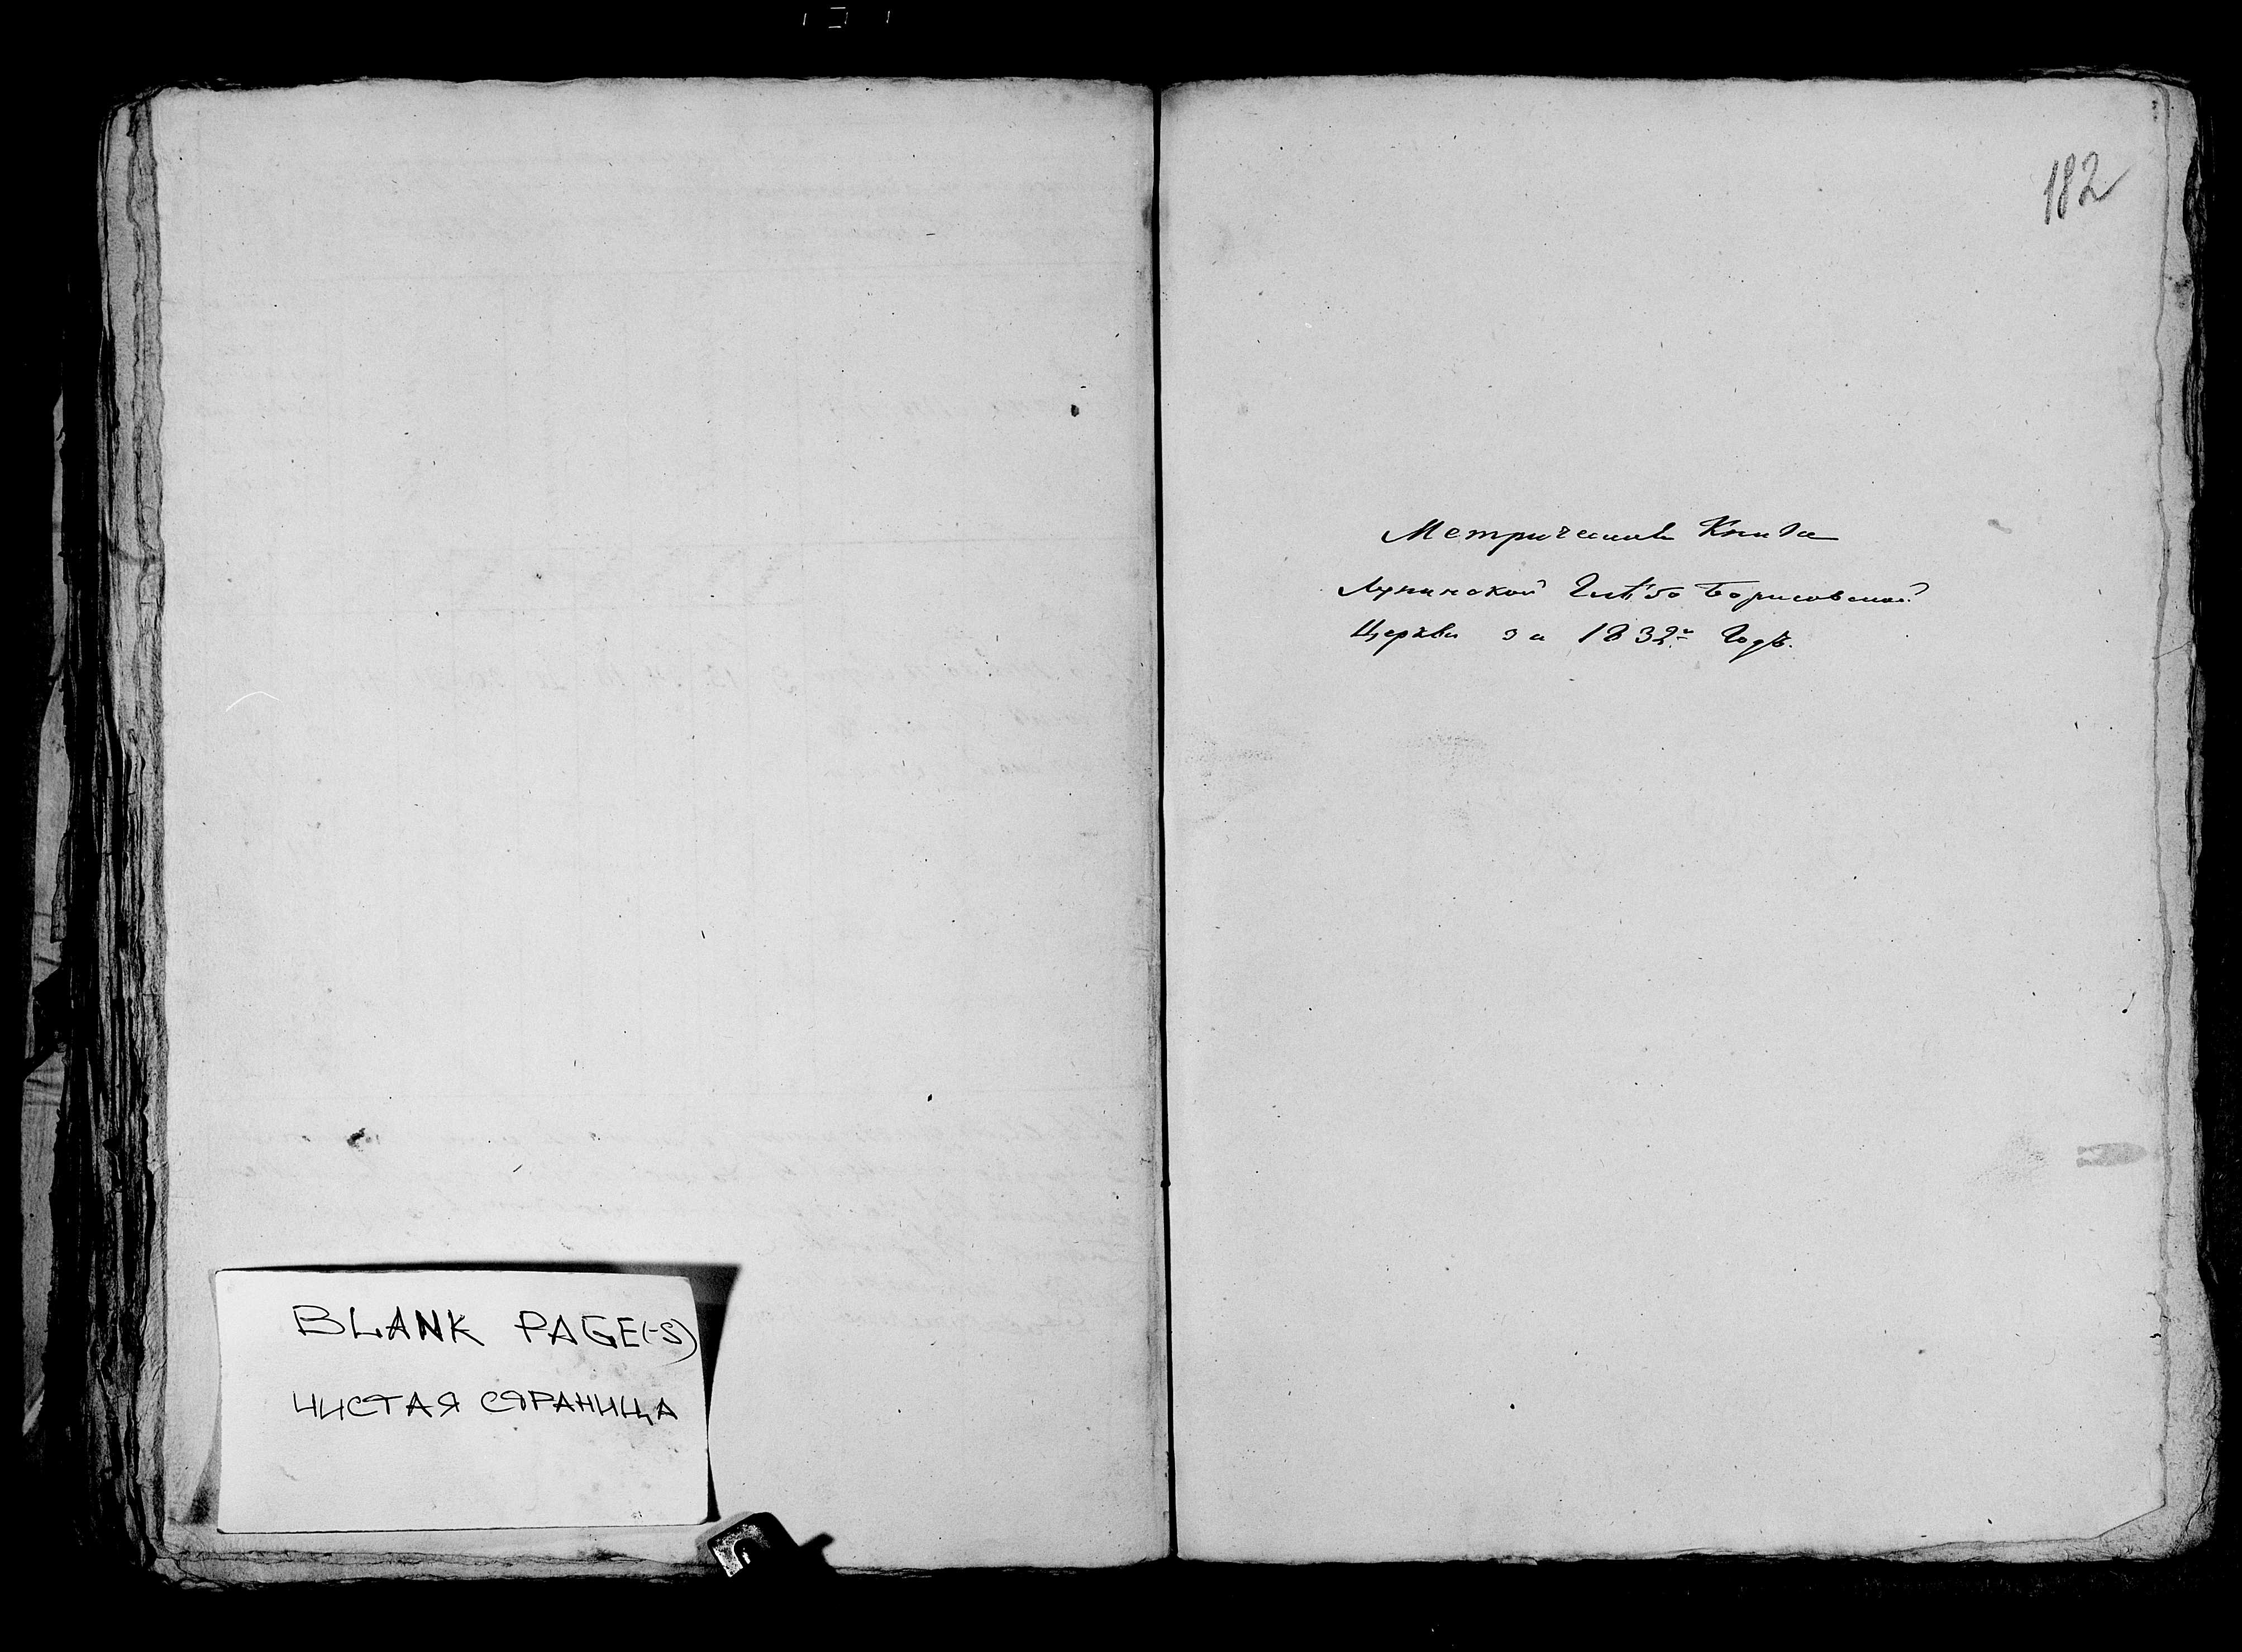 BLANK PAGE(-S)
ЧИСТАЯ СТРАНИЦА
182
Метрическая Книга
Лунинской Глѣбо Борисовской
Церкви за 1832й Годъ.